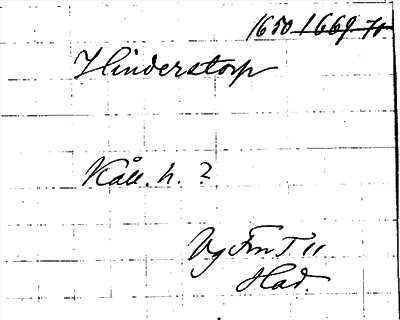 1650 1669 71
Hinderstorp
Kåll. h. ?
Vg Fm T. 11
Had.